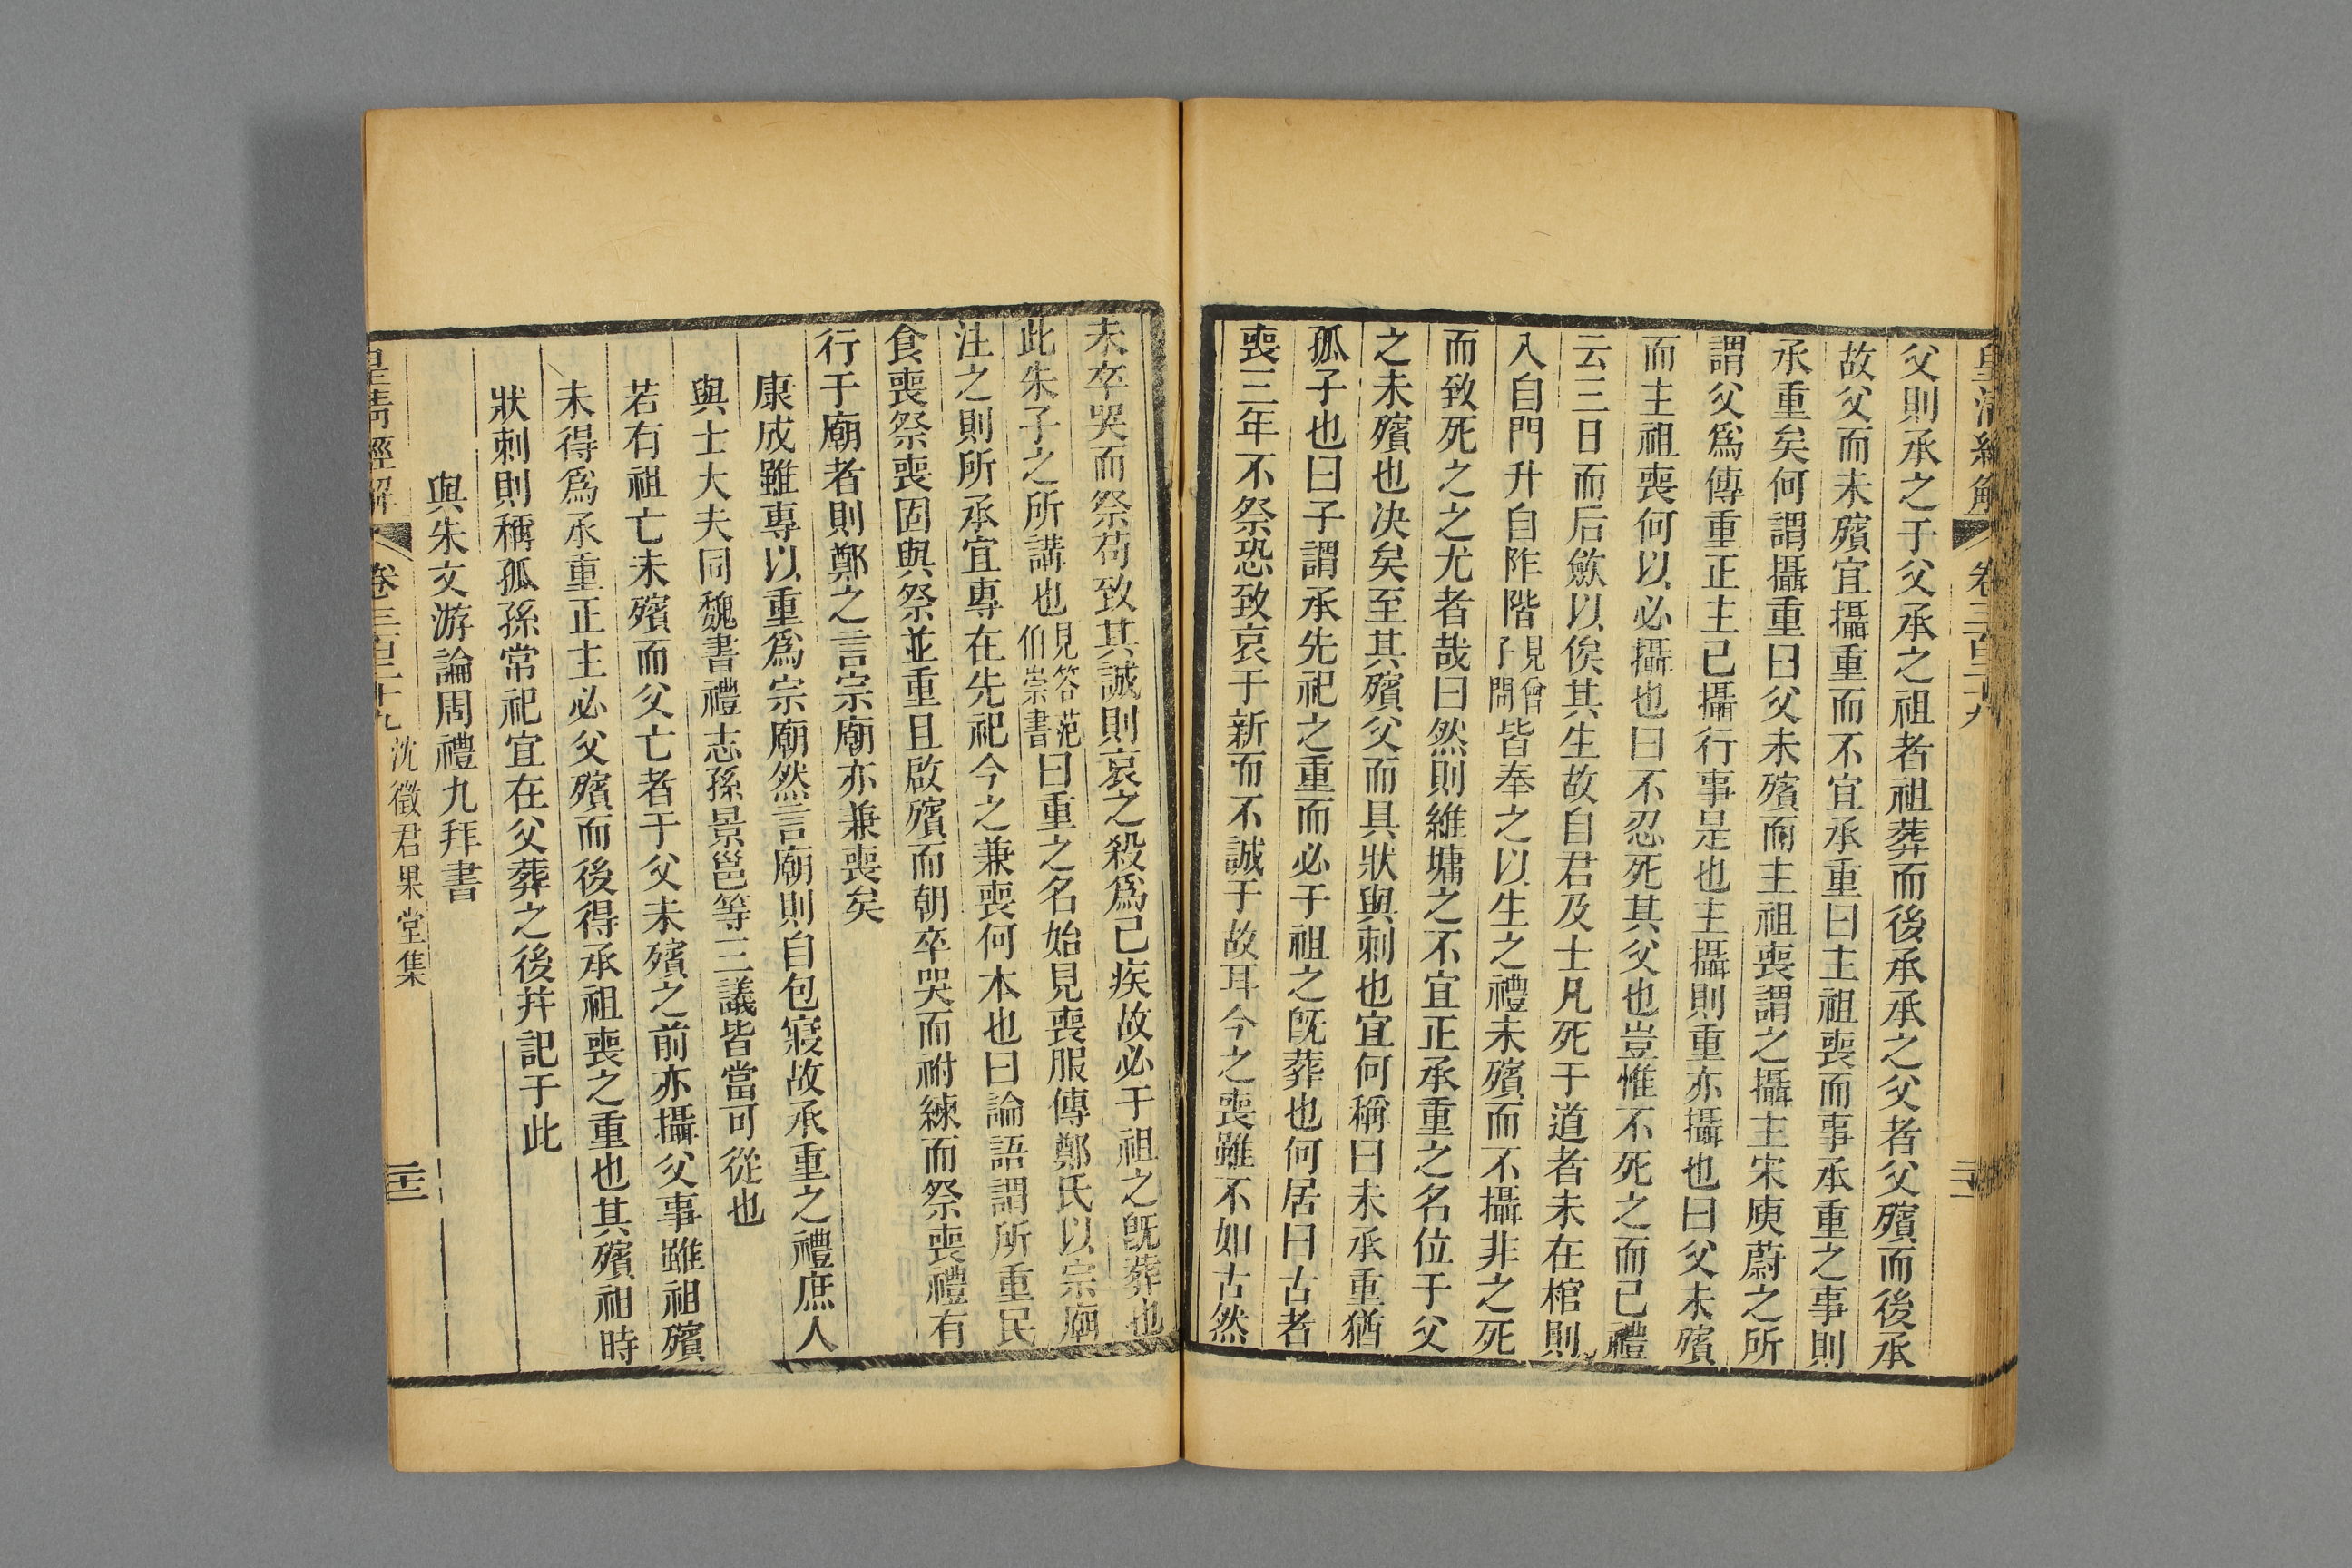 皇清經解 卷三百二十九
父則承之于父承之祖者祖葬而後承承之父者父殯而後承
故父而未殯宜攝重而不宜承重曰主祖喪而事承重之事則
承重矣何謂攝重曰父未殯而主祖喪謂之攝主宋庾蔚之所
謂父爲傳重正主已攝行事是也主攝則重亦攝也曰父未殯
而主祖喪何以必攝也曰不忍死其父也豈惟不死之而已禮
云三日而后斂以俟其生故自君及士凡死于道者未在棺則
入自門升自阼階見曾子問皆奉之以生之禮未殯而不攝非之死
而致死之之尤者哉曰然則維墉之不宜正承重之名位于父
之未殯也決矣至其殯父而具狀與刺也宜何稱曰未承重猶
孤子也曰子謂承先祀之重而必于祖之旣葬也何居曰古者
喪三年不祭恐致哀于新而不誠于故耳今之喪雖不如古然
未卒哭而祭苟致其誠則哀之殺爲已疾故必于祖之旣葬也
此朱子之所講也見答范伯崇書曰重之名始見喪服傳鄭氏以宗廟
注之則所承宜專在先祀今之兼喪何本也曰論語謂所重民
食喪祭喪固與祭並重且啟殯而朝卒哭而祔練而祭喪禮有
行于廟者則鄭之言宗廟亦兼喪矣
康成雖專以重爲宗廟然言廟則自包寢故承重之禮庶人
與士大夫同魏書禮志孫景邕等三議皆當可從也
若有祖亡未殯而父亡者于父未殯之前亦攝父事雖祖殯
未得爲承重正主必父殯而後得承祖喪之重也其殯祖時
狀刺則稱孤孫常祀宜在父葬之後幷記于此
與朱文游論周禮九拜書
皇清經解 卷三百二十九 沈徵君果堂集 二十三